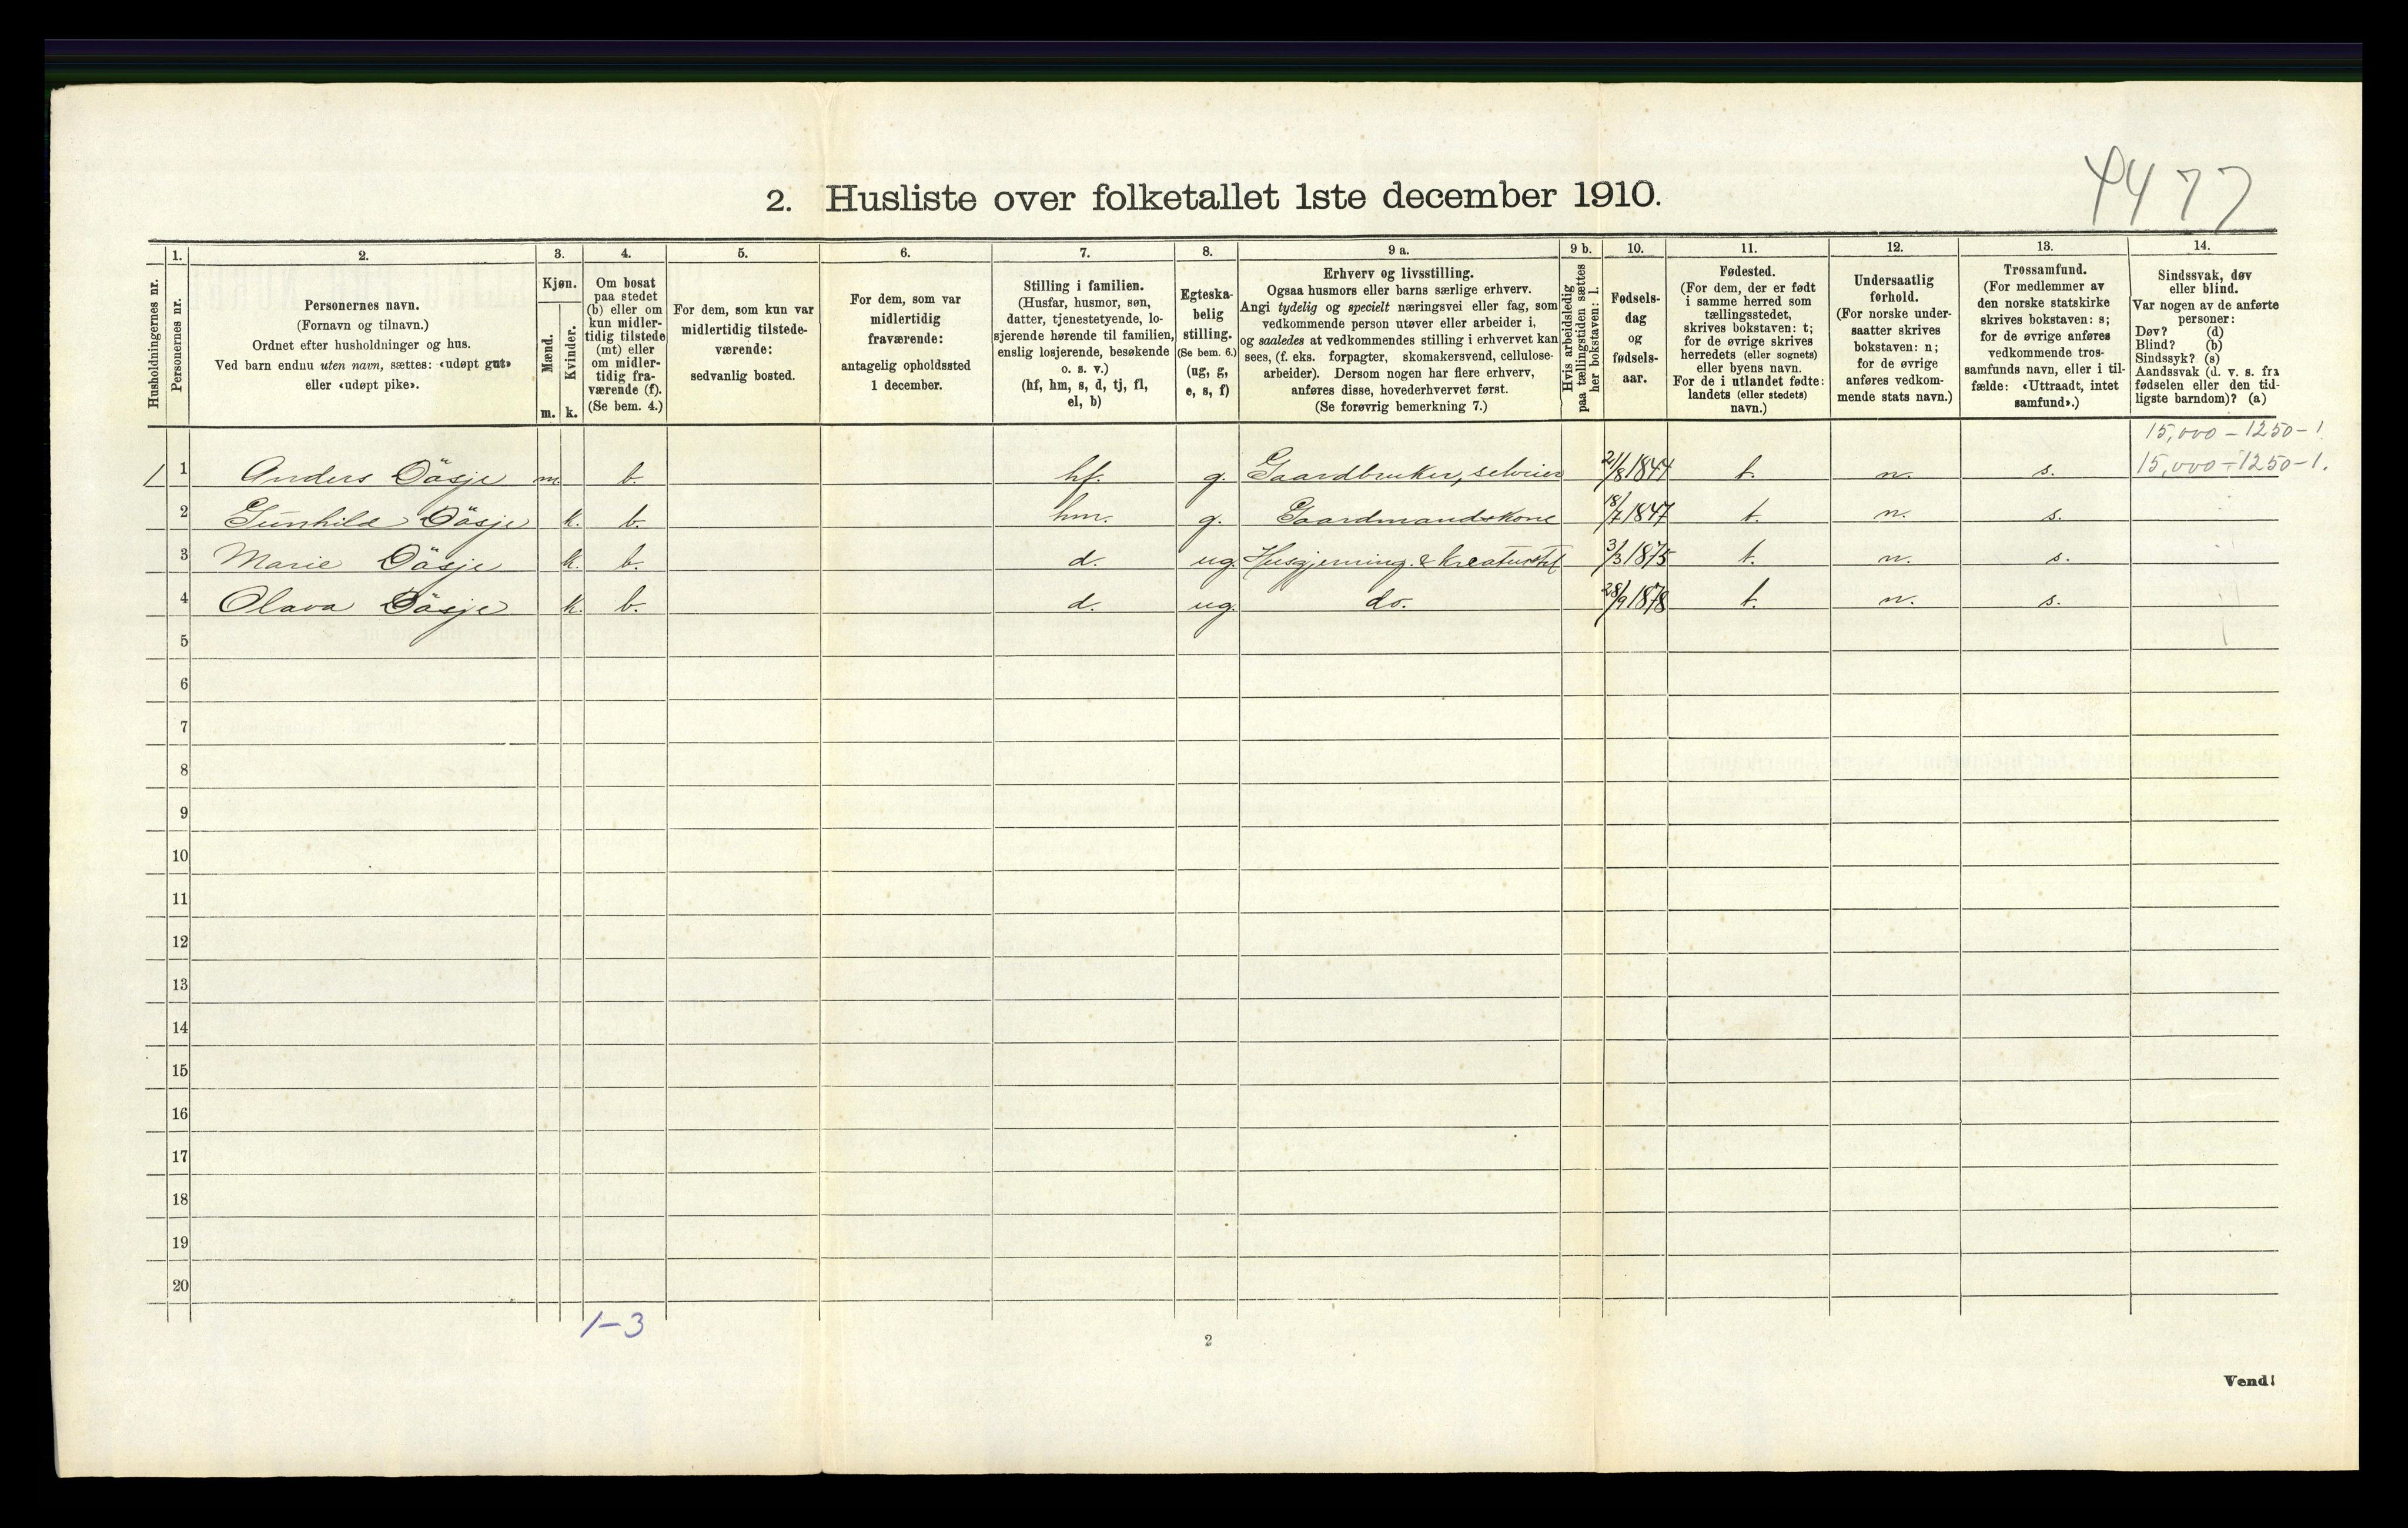 4477
2. Husliste over folketallet 1ste december 1910.
Husholdningernes nr.
1.
Personernes nr.
2.
Personernes navn.
(Fornavn og tilnavn.)
Ordnet efter husholdninger og hus.
Ved barn endnu uten navn, sættes: «udøpt gut»
eller «udøpt pike».
3.
Kjøn.
Mænd.
Kvinder.
m. k.
4.
Om bosat
paa stedet
(b) eller om
kun midler-
tidig tilstede
(mt) eller
om midler-
tidig fra-
værende (f).
(Se bem. 4.)
5.
For dem, som kun var
midlertidig tilstede-
værende:
sedvanlig bosted.
6.
For dem, som var
midlertidig
fraværende:
antagelig opholdssted
1 december.
7.
Stilling i familien.
(Husfar, husmor, søn,
datter, tjenestetyende, lo-
sjerende hørende til familien,
enslig losjerende, besøkende
o. s. v.)
(hf, hm, s, d, tj, fl,
el, b)
8.
Egteska-
belig
stilling.
(Se bem. 6.)
(ug, g,
e, s, f)
9 a.
Erhverv og livsstilling.
Ogsaa husmors eller barns særlige erhverv.
Angi tydelig og specielt næringsvei eller fag, som
vedkommende person utøver eller arbeider i,
og saaledes at vedkommendes stilling i erhvervet kan
sees, (f. eks. forpagter, skomakersvend, cellulose-
arbeider). Dersom nogen har flere erhverv,
anføres disse, hovederhvervet først.
(Se forøvrig bemerkning 7.)
9 b.
Hvis arbeidsledig
paa tællingstiden sættes
her bokstaven: l.
10.
Fødsels-
dag
og
fødsels-
aar.
11.
Fødested.
(For dem, der er født
i samme herred som
tællingsstedet,
skrives bokstaven: t;
for de øvrige skrives
herredets (eller sognets)
eller byens navn.
For de i utlandet fødte:
landets (eller stedets)
navn.)
12.
Undersaatlig
forhold.
(For norske under-
saatter skrives
bokstaven: n;
for de øvrige
anføres vedkom-
mende stats navn.)
13.
Trossamfund.
(For medlemmer av
den norske statskirke
skrives bokstaven: s;
for de øvrige anføres
vedkommende tros-
samfunds navn, eller i til-
fælde: «Uttraadt, intet
samfund».)
14.
Sindssvak, døv
eller blind.
Var nogen av de anførte
personer:
Døv? (d)
Blind? (b)
Sindssyk? (s)
Aandssvak (d. v. s. fra
fødselen eller den tid-
ligste barndom)? (a)
15,000 – 1250 – 1.
1 1 Anders Däsje m. b. hf. g. Gaardbruker, selveier 21/8 1844 t. n. s. 15,000 – 1250 – 1.
2 Gunhild Däsje k. b. hm. g. Gaardmandskone 18/7 1847 t. n. s.
3 Marie Däsje k. b. d. ug. Husgjerning. & kreaturstel 3/3 1875 t. n. s.
4 Olava Däsje k. b. d. ug. do. 28/9 1878 t. n. s.
5
6
7
8
9
10
11
12
13
14
15
16
17
18
19
20
1–3
2
Vend!